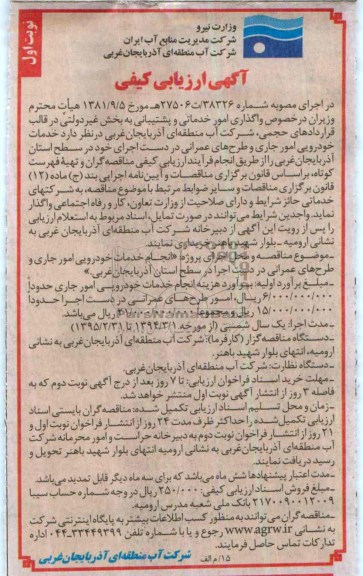 نوبت اول
وزارت نیرو
شرکت مدیریت منابع آب ایران
شرکت آب منطقه‌ای آذربایجان‌غربی
آگهی ارزیابی کیفی
در اجرای مصوبه شماره ۳۸۳۲۶/ت۲۷۵۰۶هـ مورخ ۱۳۸۱/۹/۵ هیأت محترم
وزیران در خصوص واگذاری امور خدماتی و پشتیبانی به بخش غیردولتی در قالب
قراردادهای حجمی، شرکت آب منطقه‌ای آذربایجان‌غربی در نظر دارد خدمات
خودرویی امور جاری و طرح‌های عمرانی در دست اجرای خود در سطح استان
آذربایجان غربی را از طریق انجام فرآیند ارزیابی کیفی مناقصه‌گران و تهیه فهرست
کوتاه، براساس قانون برگزاری مناقصات و آیین‌نامه اجرایی بند (ج) ماده (۱۲)
قانون برگزاری مناقصات و سایر ضوابط مرتبط با موضوع مناقصه، به شرکتهای
خدماتی حائز شرایط و دارای صلاحیت از وزارت تعاون، کار و رفاه اجتماعی واگذار
نماید. واجدین شرایط می‌توانند در صورت تمایل، اسناد مربوط به استعلام ارزیابی
را پس از رویت این آگهی از دبیرخانه شرکت آب منطقه‌ای آذربایجان غربی به
نشانی ارومیه ـ بلوار شهید باهنر خریداری نمایند.
ـ موضوع مناقصه و محل اجرای پروژه: «انجام خدمات خودرویی امور جاری و
طرح‌های عمرانی در دست اجرا در سطح استان آذربایجان‌غربی.»
ـ مبلغ برآورد اولیه: برآورد هزینه انجام خدمات خودرویی امور جاری حدوداً
۶/۰۰۰/۰۰۰/۰۰۰ ریال، امور طرح‌های عمرانی در دست اجرا حدوداً
۱۵/۰۰۰/۰۰۰/۰۰۰ ریال و مجموعاً ریال می‌باشد.
ـ مدت اجرا: یک سال شمسی (از مورخه ۱۳۹۴/۳/۱ تا ۱۳۹۵/۲/۳۱)
ـ دستگاه مناقصه‌گزار (کارفرما): شرکت آب منطقه‌ای آذربایجان‌غربی به نشانی
ارومیه، انتهای بلوار شهید باهنر.
ـ دستگاه نظارت: شرکت آب منطقه‌ای آذربایجان‌غربی.
ـ مهلت خرید اسناد فراخوان ارزیابی: تا ۷ روز بعد از درج آگهی نوبت دوم که به
فاصله ۳ روز از انتشار آگهی نوبت اول منتشر خواهد شد.
ـ زمان و محل تسلیم اسناد ارزیابی تکمیل شده: مناقصه‌گران بایستی اسناد
ارزیابی تکمیل‌شده را حداکثر ظرف مدت ۲۴ روز از انتشار فراخوان نوبت اول و
۲۱ روز از انتشار فراخوان نوبت دوم به دبیرخانه حراست و امور محرمانه شرکت
آب منطقه‌ای آذربایجان‌غربی به نشانی ارومیه انتهای بلوار شهید باهنر تحویل و
رسید دریافت نمایند.
ـ مدت اعتبار پیشنهادها شش ماه می‌باشد که برای سه ماه دیگر قابل تمدید می‌باشد.
ـ مبلغ فروش اسناد ارزیابی کیفی: ۲۵۰/۰۰۰ ریال در وجه شماره حساب سیبا
۲۱۷۰۰۹۰۰۱۲۰۰۹ بانک ملی شعبه مدرس ارومیه.
ـ مناقصه‌گران می‌توانند به منظور کسب اطلاعات بیشتر به پایگاه اینترنتی شرکت
به نشانی www.agrw.ir رجوع و یا با شماره تلفن ۳۳۴۴۹۳۹۹-۰۴۴ اداره
تدارکات تماس حاصل فرمایند.
۱۵/م الف
شرکت آب منطقه‌ای آذربایجان‌غربی